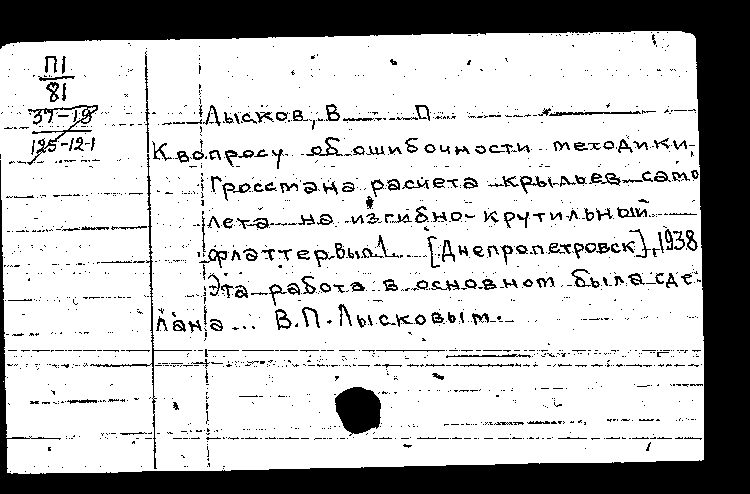 П1
81
37-19
125-12-1
Лысков, В П
К вопросу об ошибочности методики
Гроссмана расчета крыльев само
лета на изгибно-крутильный
флаттер. Вып 1. [Днепропетровск], 1938
Эта работа в основном была сде-
лана... В.П. Лысковым.